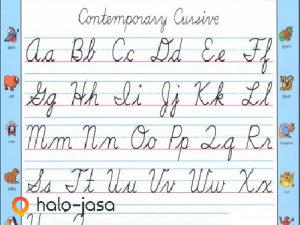 Contemporary Cursive
Aa Bb Cc Dd Ee Ff
Gg Hh Ii Jj Kk Ll
Mm Nn Oo Pp Qq Rr
Ss Tt Uu Vv Ww Xx
halo-jasa